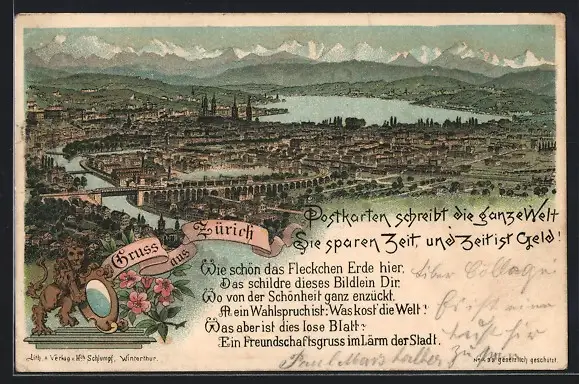 Gruss
aus
Zürich
Postkarten schreibt die ganze Welt
Sie sparen Zeit, und Zeit ist Geld!
Wie schön das Fleckchen Erde hier,
Das schildre dieses Bildlein Dir.
Wo von der Schönheit ganz enzückt,
Mein Wahlspruch ist: Was kost' die Welt!
Was aber ist dies lose Blatt?
Ein Freundschaftsgruss im Lärm der Stadt.
Lieber College
Es ist eine
Lith. & Verlag v. Hch Schlumpf, Winterthur.
gesetzlich geschützt.